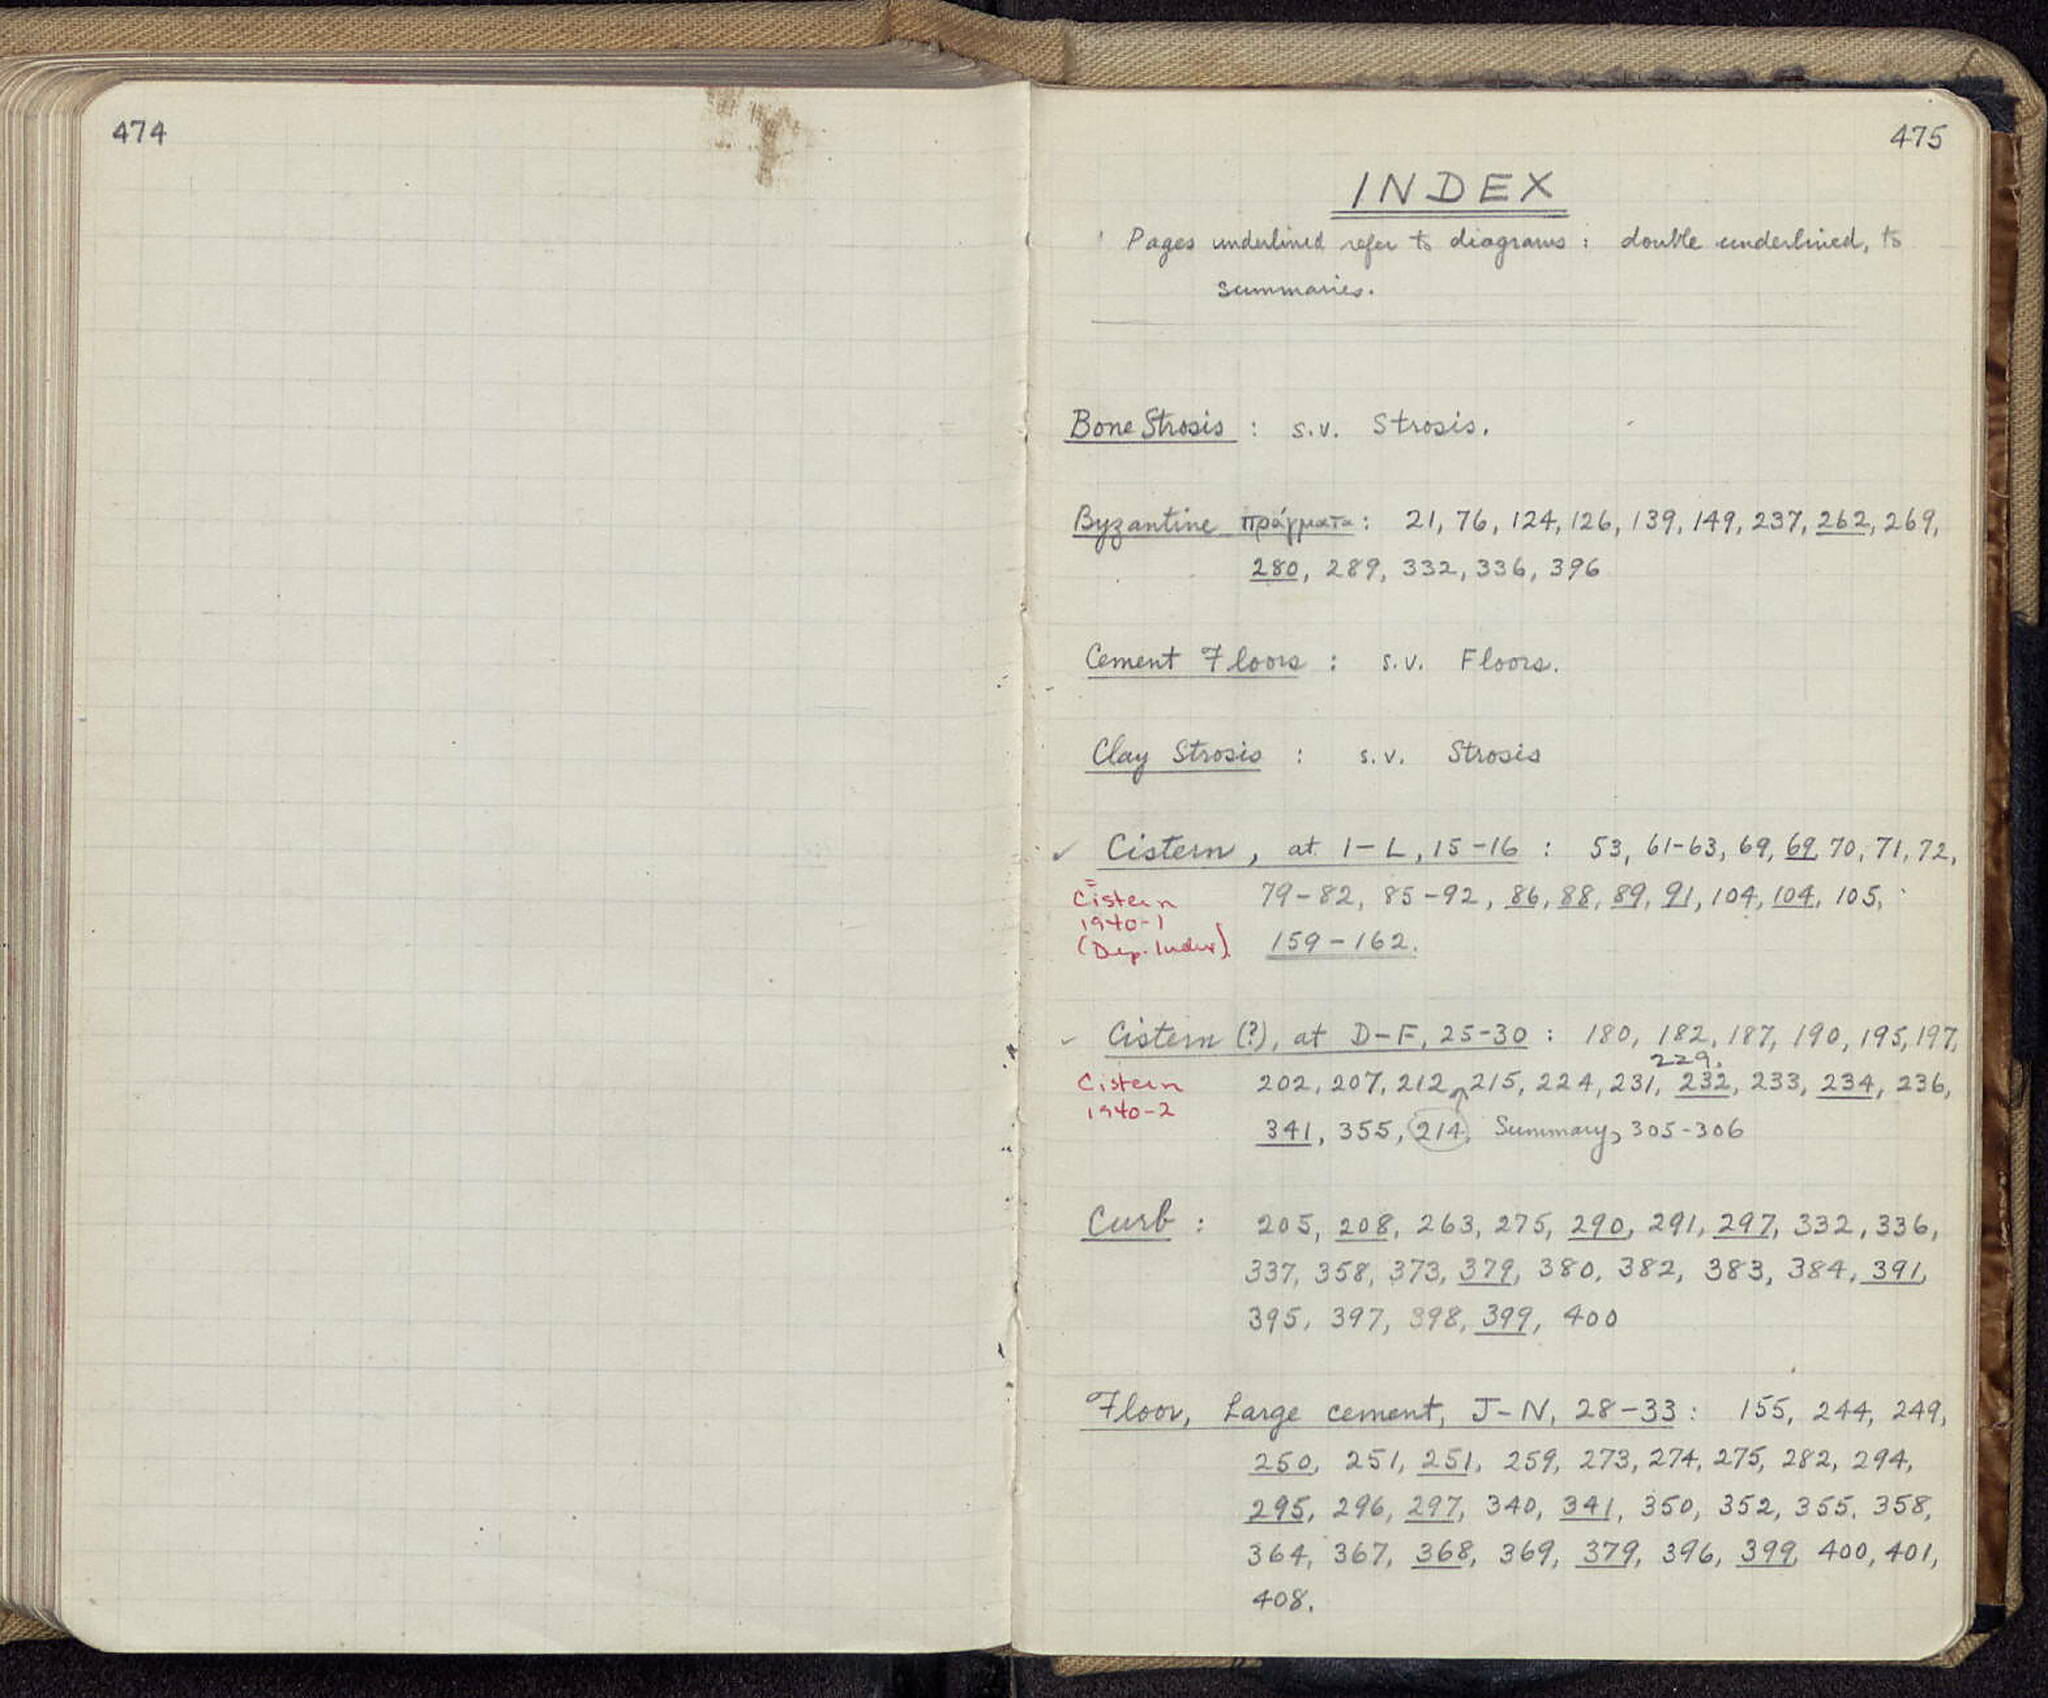 474
475
INDEX
Pages underlined refer to diagrams : double underlined, to
summaries.
Bone Strosis : s.v. Strosis.
Byzantine πράγματα : 21, 76, 124, 126, 139, 149, 237, 262, 269,
280, 289, 332, 336, 396
Cement Floors : s.v. Floors.
Clay Strosis : s.v. Strosis
✓ Cistern, at I-L, 15-16 : 53, 61-63, 69, 69, 70, 71, 72,
= Cistern 79-82, 85-92, 86, 88, 89, 91, 104, 104, 105,
1940-1
(Dep. Index) 159-162.
✓ Cistern (?), at D-F, 25-30 : 180, 182, 187, 190, 195, 197,
229.
Cistern 202, 207, 212, 215, 224, 231, 232, 233, 234, 236,
1940-2
341, 355, 214, Summary, 305-306
Curb : 205, 208, 263, 275, 290, 291, 297, 332, 336,
337, 358, 373, 379, 380, 382, 383, 384, 391,
395, 397, 398, 399, 400
Floor, Large cement, J-N, 28-33 : 155, 244, 249,
250, 251, 251, 259, 273, 274, 275, 282, 294,
295, 296, 297, 340, 341, 350, 352, 355, 358,
364, 367, 368, 369, 379, 396, 399, 400, 401,
408.